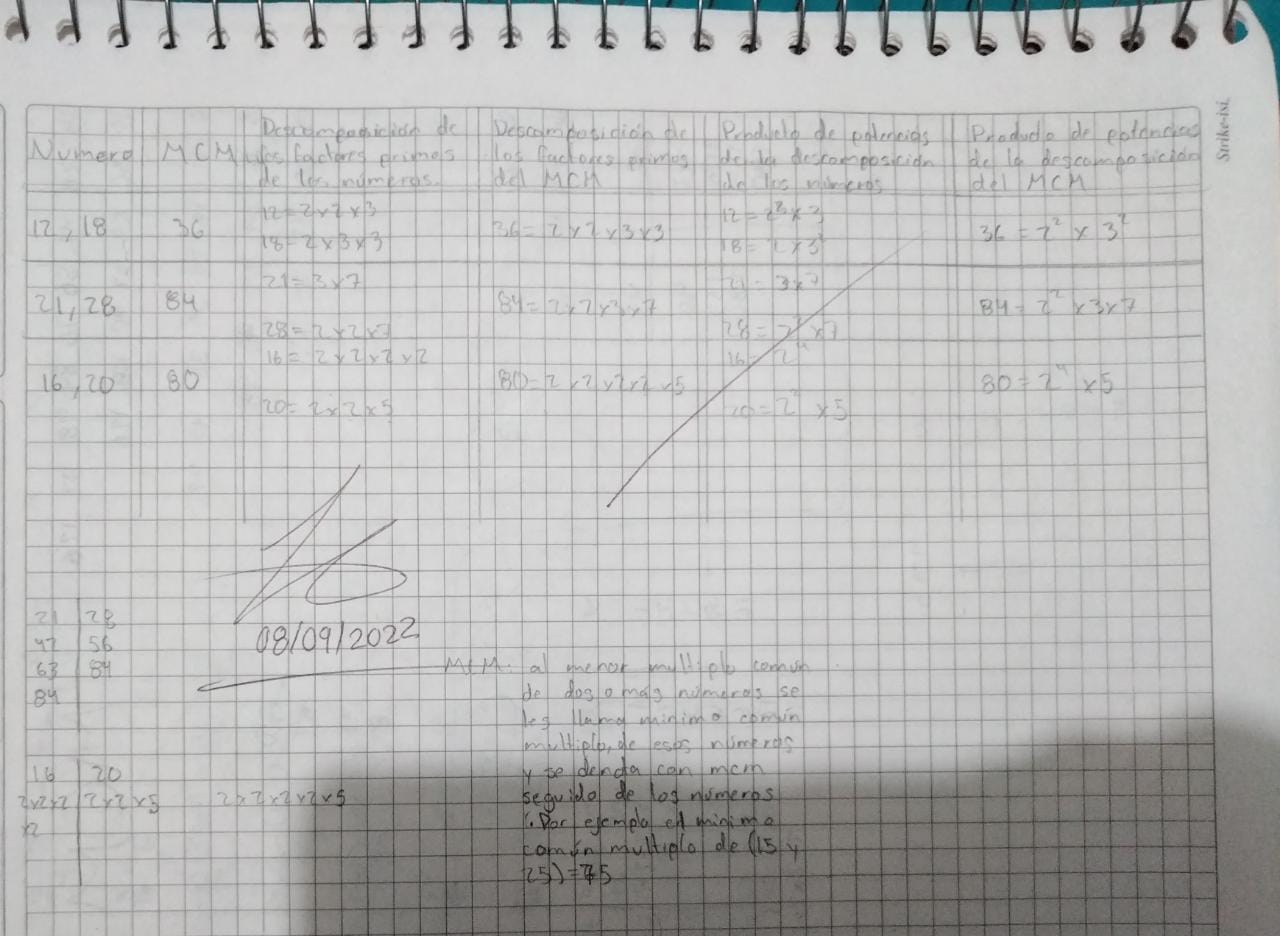 Strike·ixi
Numero
MCM
Descomposición de
los factores primos
de los números.
Descomposición de
los factores primos
del MCM
Producto de potencias
de la descomposición
de los números
Producto de potencias
de la descomposición
del MCM
12,18
36
12=2x2x3
18=2x3x3
36=2x2x3x3
12=2²x3
18=2x3²
36=2²x3²
21,28
84
21=3x7
28=2x2x7
84=2x2x3x7
21=3x7
28=2²x7
84=2²x3x7
16,20
80
16=2x2x2x2
20=2x2x5
80=2x2x2x2x5
16=2⁴
20=2²x5
80=2⁴x5
08/09/2022
21 28
42 56
63 84
84
16 20
2x2x2 2x2x5 2x2x2x2x5
x2
MCM: al menor multiplo comun
de dos o más números se
les llama minimo común
multiplo, de esos números
y se denota con mcm
seguido de los números
Por ejemplo el minimo
común multiplo de (15 y
25)=75